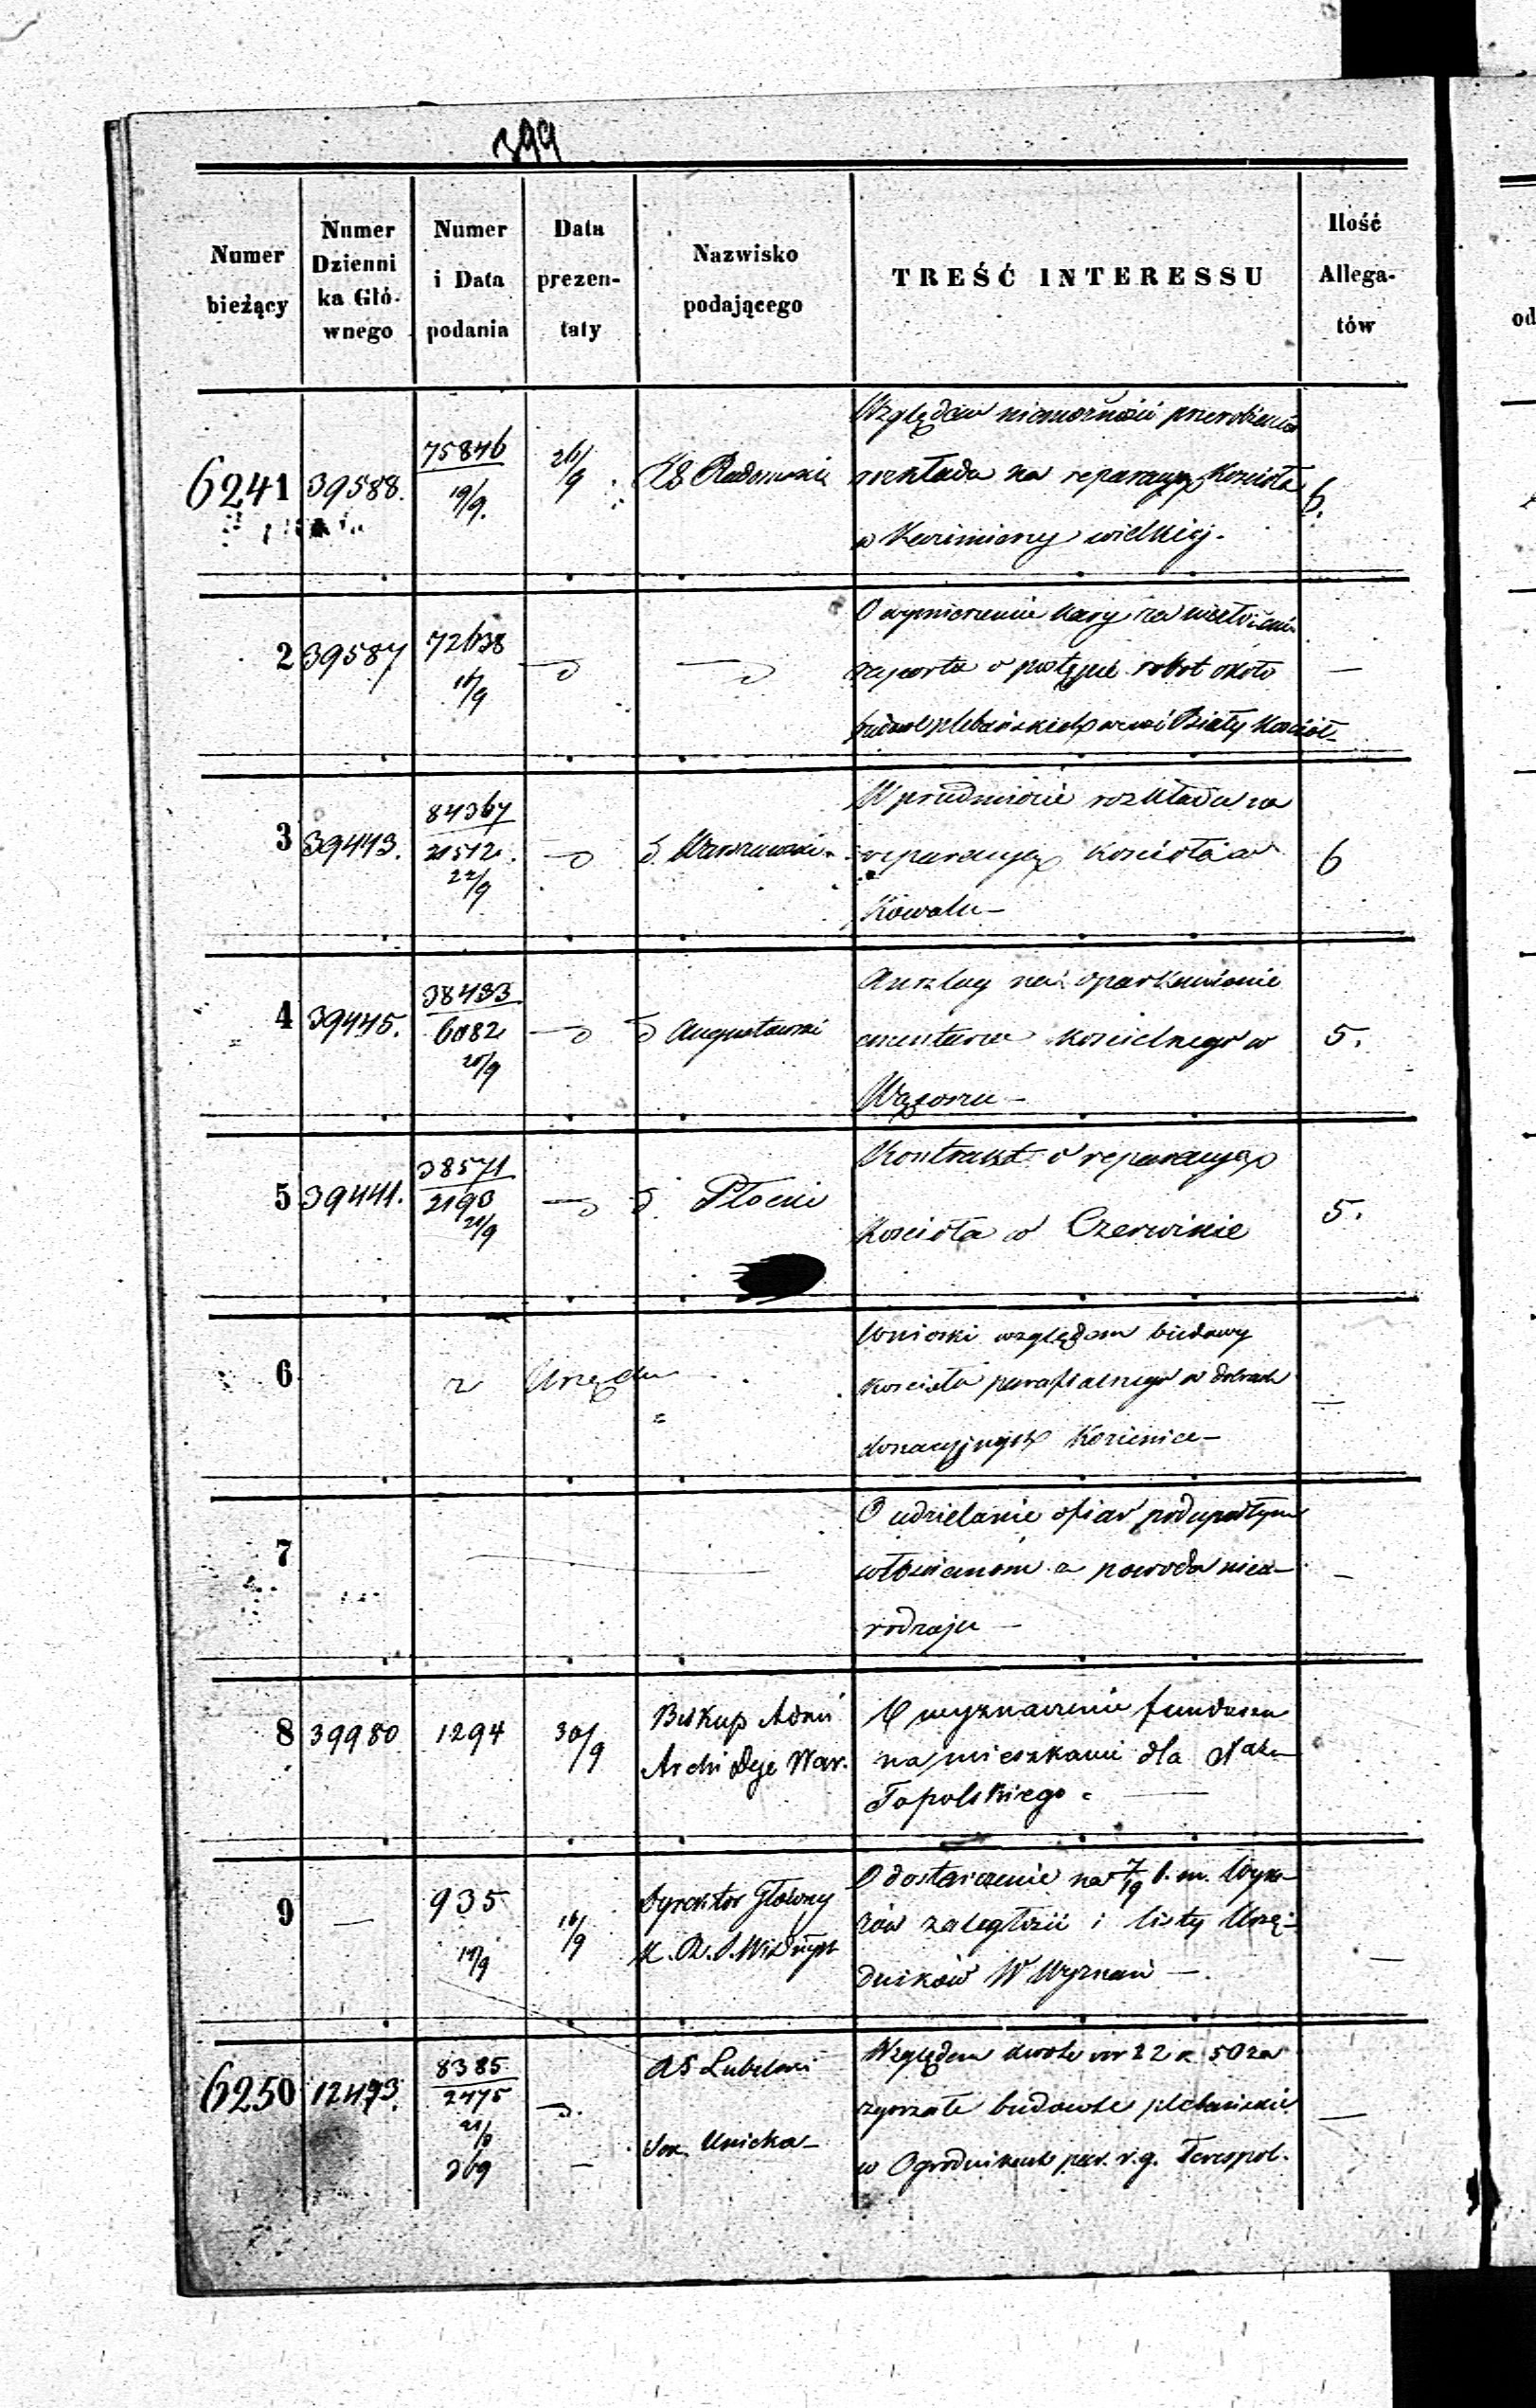 399
Numer bieżący
Numer Dzienni ka Głó- wnego
Numer i Data podania
Data prezen- taty
Nazwisko podającego
TREŚĆ INTERESSU
Ilość Allega- tów
od
6241 39588. 75846 19/9. 26/9 Radomski
Względem niemożności przerobienia
rozkładu na reparacyą Kościoła
w Kazimierzy wielkiej.
6.
2 39587 72638 16/9
O wymierzenie kary za niezłożenie
raportu o postępie robot około
budowl plebańskich we wsi Biały Kościół
—
3 39443. 84367 21512. 22/9 Warszawski
W przedmiocie rozkładu na
reparacyą Kościoła w
Kowalu —
6
4 39445. 38433 6082 20/9 Augustowski
Anszlag na oparkanienie
cmentarza kościelnego w
Wąsoszu —
5.
5 39441. 38571 2193 21/9 Płocki
Kontrakt o reparacyą
Kościoła w Czerwinie
5.
6 z Urzędu
Wnioski względem budowy
kościoła parafialnego w dobrach
donacyjnych Kozienice —
—
7
O udzielanie ofiar podupadłym
włościanom z powodu nieu-
rodzaju —
—
8 39980 1294 30/9
Biskup Admi
Archi Dye War.
O wyznaczenie funduszu
na mieszkanie dla
Topolskiego.
9 — 935 16/9
Dyrektor Główny
O dostarczenie na 7/19 b. m. Wyka-
zów zaległości i listy Urzę-
dników W Wyznań —.
—
6250 12493. 8385 2475 21/9 269 —
Lubelski
Unicka —
Względem kwoty rsr 22 k. 50 za
zgorzałe budowle plebańskie
w Ogrodnikach par. r. g. Terespol.
—